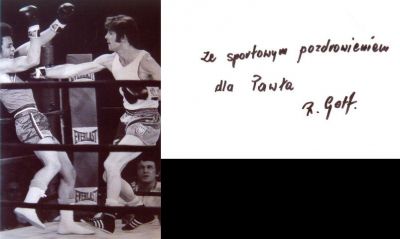 EVERLAST
EVERLAST
EVERLAST
Ze sportowym pozdrowieniem
dla Pawła
R. Gott.